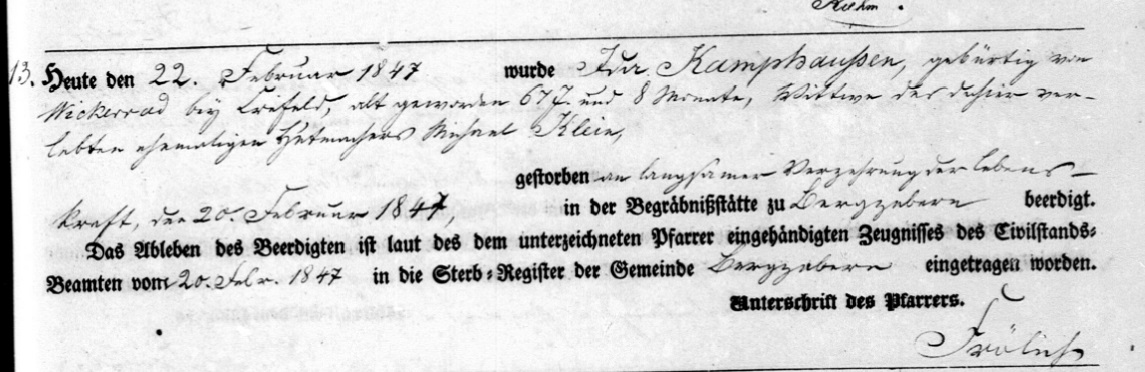 Rihm.
13. Heute den 22. Februar 1847 wurde Ida Kamphaußen, gebürtig von
Wickerrad bey Crefeld, alt geworden 67 J. und 8 Monate, Wittwe des dahier ver-
lebten ehemaligen Hutmachers Michael Klein,
gestorben an langsamer Verzehrung der Lebens-
kraft, den 20. Februar 1847, in der Begräbnißstätte zu Bergzabern beerdigt.
Das Ableben des Beerdigten ist laut des dem unterzeichneten Pfarrer eingehändigten Zeugnisses des Civilstands-
Beamten vom 20. Febr. 1847 in die Sterb-Register der Gemeinde Bergzabern eingetragen worden.
Unterschrift des Pfarrers.
Frölich